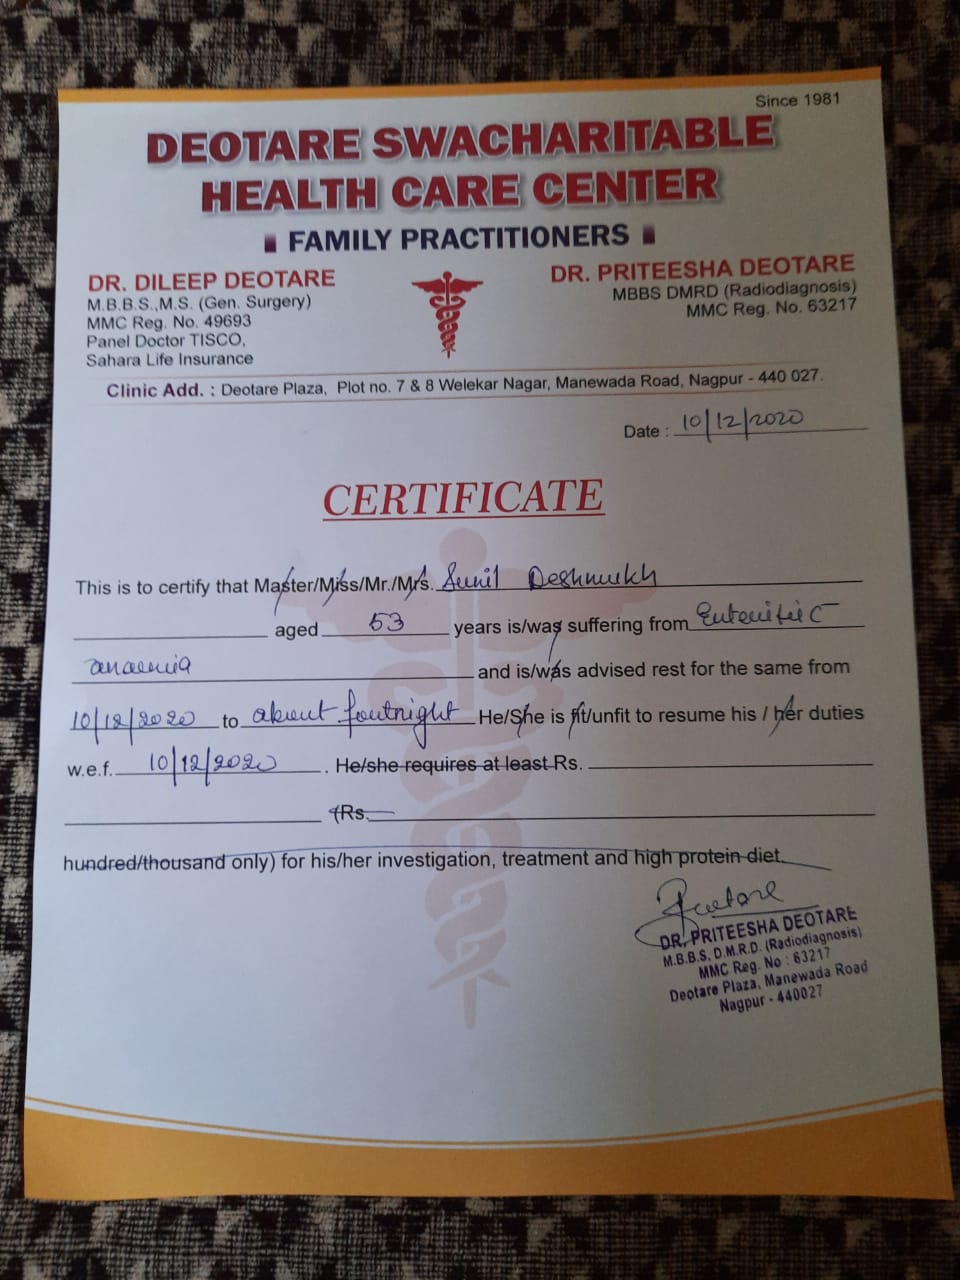 Since 1981
DEOTARE SWACHARITABLE
HEALTH CARE CENTER
FAMILY PRACTITIONERS
DR. DILEEP DEOTARE
M.B.B.S.,M.S. (Gen. Surgery)
MMC Reg. No. 49693
Panel Doctor TISCO,
Sahara Life Insurance
DR. PRITEESHA DEOTARE
MBBS DMRD (Radiodiagnosis)
MMC Reg. No. 63217
Clinic Add. : Deotare Plaza, Plot no. 7 & 8 Welekar Nagar, Manewada Road, Nagpur - 440 027.
Date : 10/12/2020
CERTIFICATE
This is to certify that Master/Miss/Mr./Mrs. Sunil Deshmukh
aged 53 years is/was suffering from
anaemia and is/was advised rest for the same from
10/12/2020 to about foutnight He/She is fit/unfit to resume his / her duties
w.e.f. 10/12/2020 . He/she requires at least Rs.
(Rs.
hundred/thousand only) for his/her investigation, treatment and high protein diet.
DR. PRITEESHA DEOTARE
M.B.B.S, D.M.R.D. (Radiodiagnosis)
MMC Reg. No : 63217
Deotare Plaza, Manewada Road
Nagpur - 440027